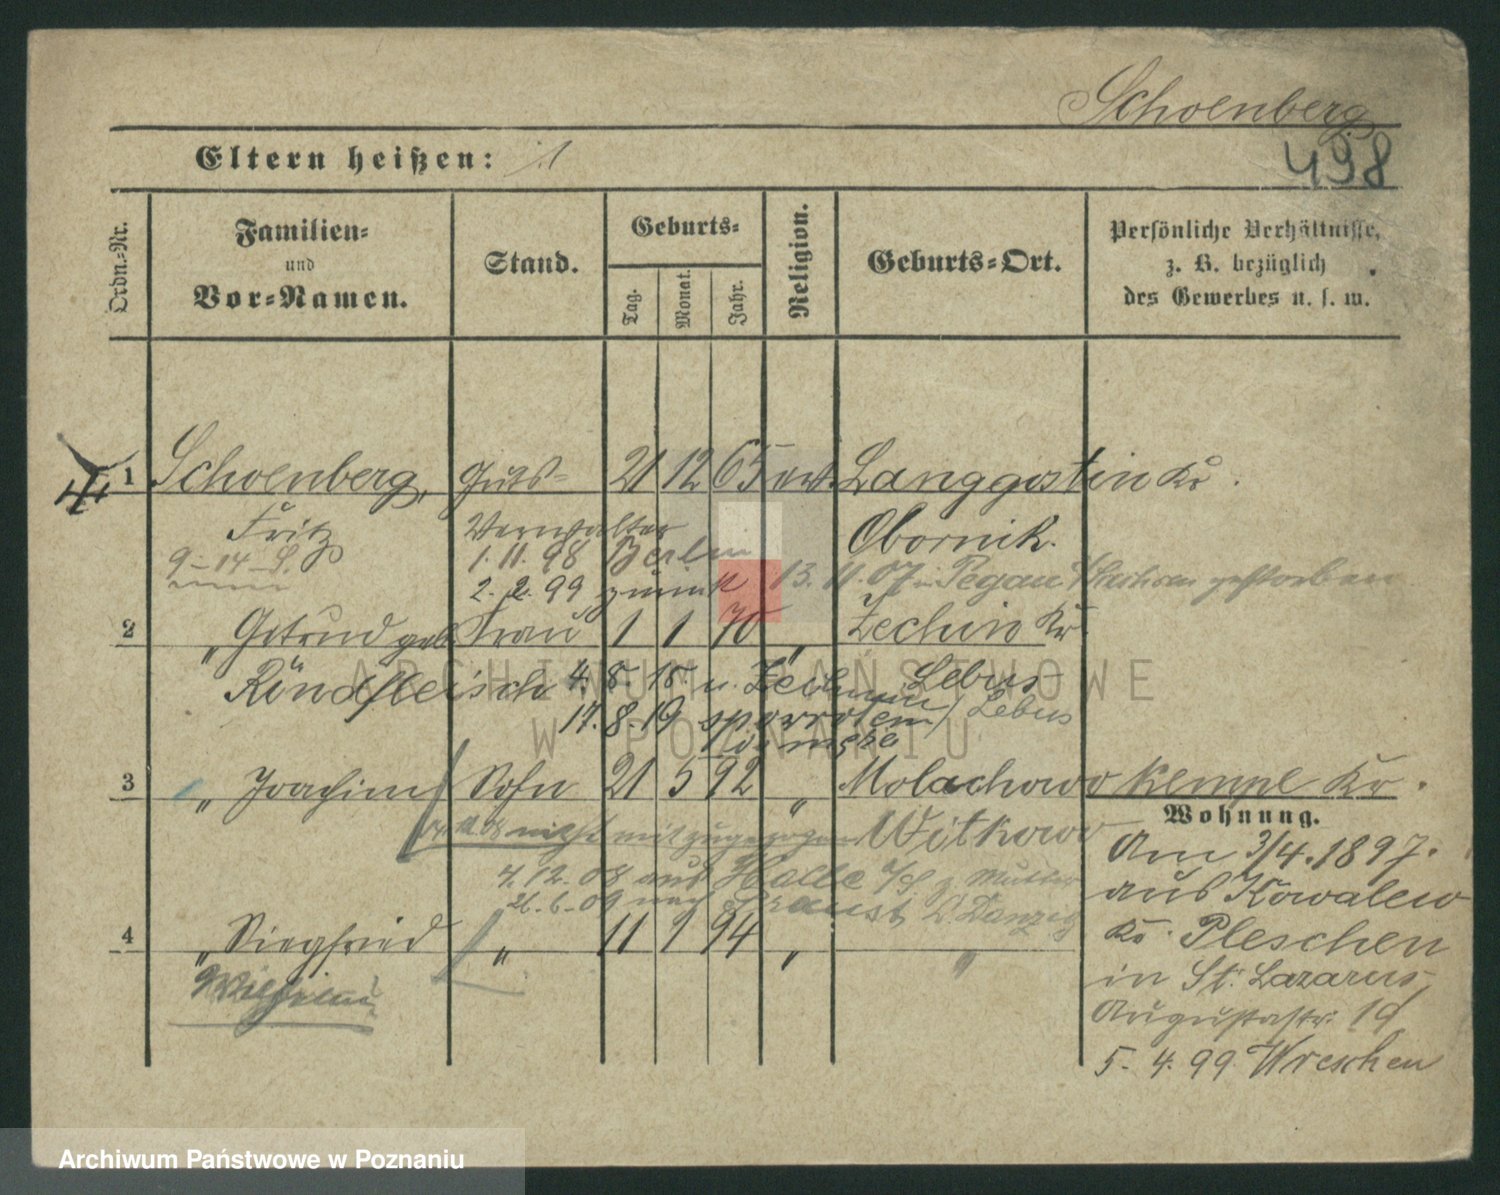 Schoenberg
498
Eltern heißen: 1
Ordn.-Nr.
Familien-
und
Vor-Namen.
Stand.
Geburts-
Tag.
Monat.
Jahr.
Religion.
Geburts-Ort.
Persönliche Verhältnisse,
z. B. bezüglich
des Gewerbes u. s. w.
1 Schoenberg, Guts- 21 12 65 Langgostin Kr.
Fritz Verwalter Obornik.
9-14
1. 11. 98 Berlin
2. 2. 99 zurück 13. 11. 07 in Pegau gestorben
2 " Gertrud geb. Frau 1 1 70 " Zechin Kr.
Rindfleisch 4. 8. 18. Lebus
17. 8. 19 Lebus
3 " Joachim Sohn 21 5 92 " Molachowo Kr.
nicht mit zugezogen Witkowo
4. 12. 08 aus Halle a/S z. Mutter
26. 6. 09 nach Praust Danzig
4 " Siegfried " 11 1 94 " "
Wilhelm
Wohnung.
Am 3/4. 1897.
aus Kowalew
Kr. Pleschen
in St. Lazarus,
Augustastr.
5. 4. 99 Wreschen
ARCHIWUM PAŃSTWOWE
W POZNANIU
Archiwum Państwowe w Poznaniu